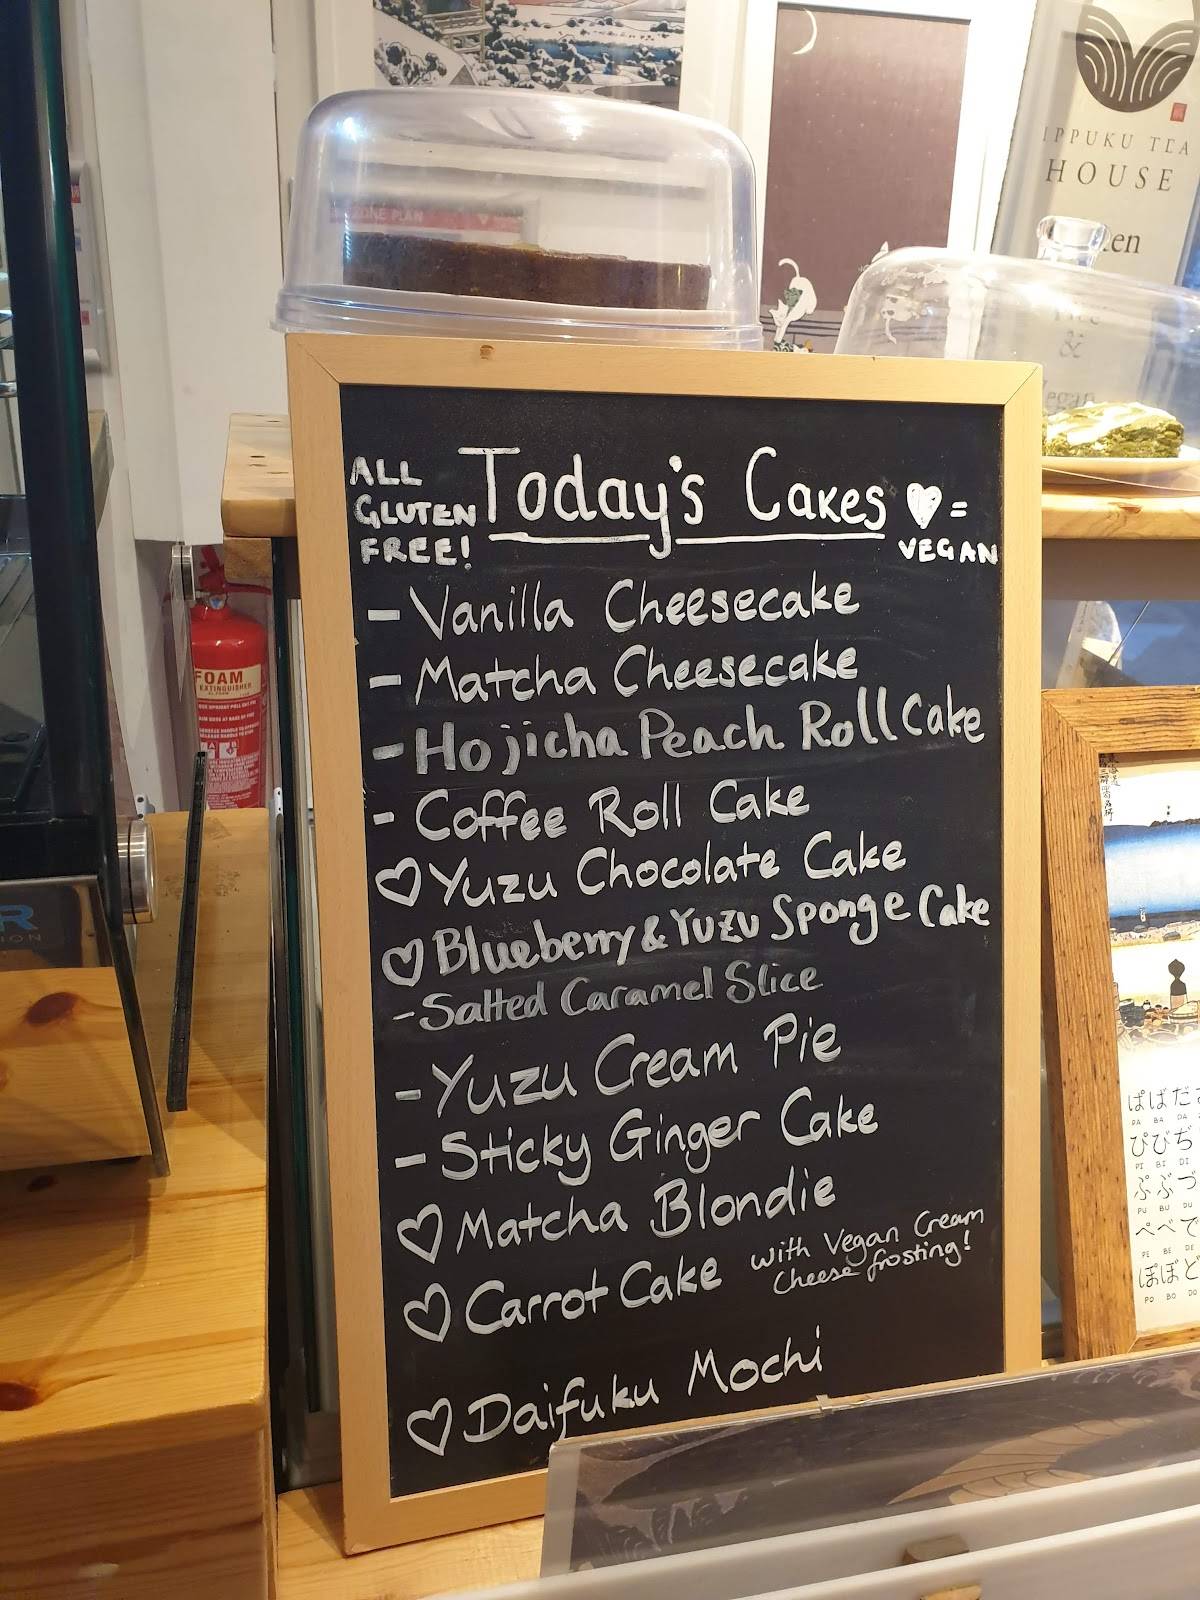 ZONE PLAN
IPPUKU TEA
HOUSE
&
ALL
GLUTEN
FREE!
Today's Cakes
♥ =
VEGAN
- Vanilla Cheesecake
- Matcha Cheesecake
- Hojicha Peach Roll Cake
- Coffee Roll Cake
♡ Yuzu Chocolate Cake
♡ Blueberry & Yuzu Sponge Cake
- Salted Caramel Slice
- Yuzu Cream Pie
- Sticky Ginger Cake
♡ Matcha Blondie
♡ Carrot Cake with Vegan Cream
Cheese frosting!
♡ Daifuku Mochi
FOAM
EXTINGUISHER
ぱ ば だ
PA BA DA
ぴ び ぢ
PI BI DI
ぷ ぶ づ
PU BU DU
ぺ べ で
PE BE DE
ぽ ぼ ど
PO BO DO